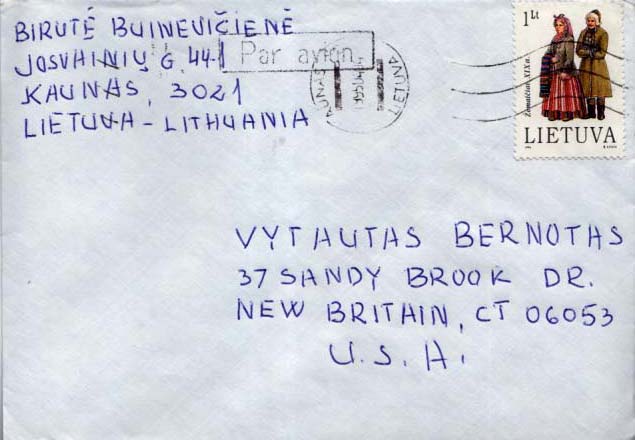 BIRUTĖ BUINEVIČIENĖ
JOSVAINIŲ G. 44-1
KAUNAS, 3021
LIETUVA - LITHUANIA
Par avion
KAUNAS
LIETUVA
1 Lt
Žemaičiai XIX a.
LIETUVA
VYTAUTAS BERNOTAS
37 SANDY BROOK DR.
NEW BRITAIN, CT 06053
U.S.A.